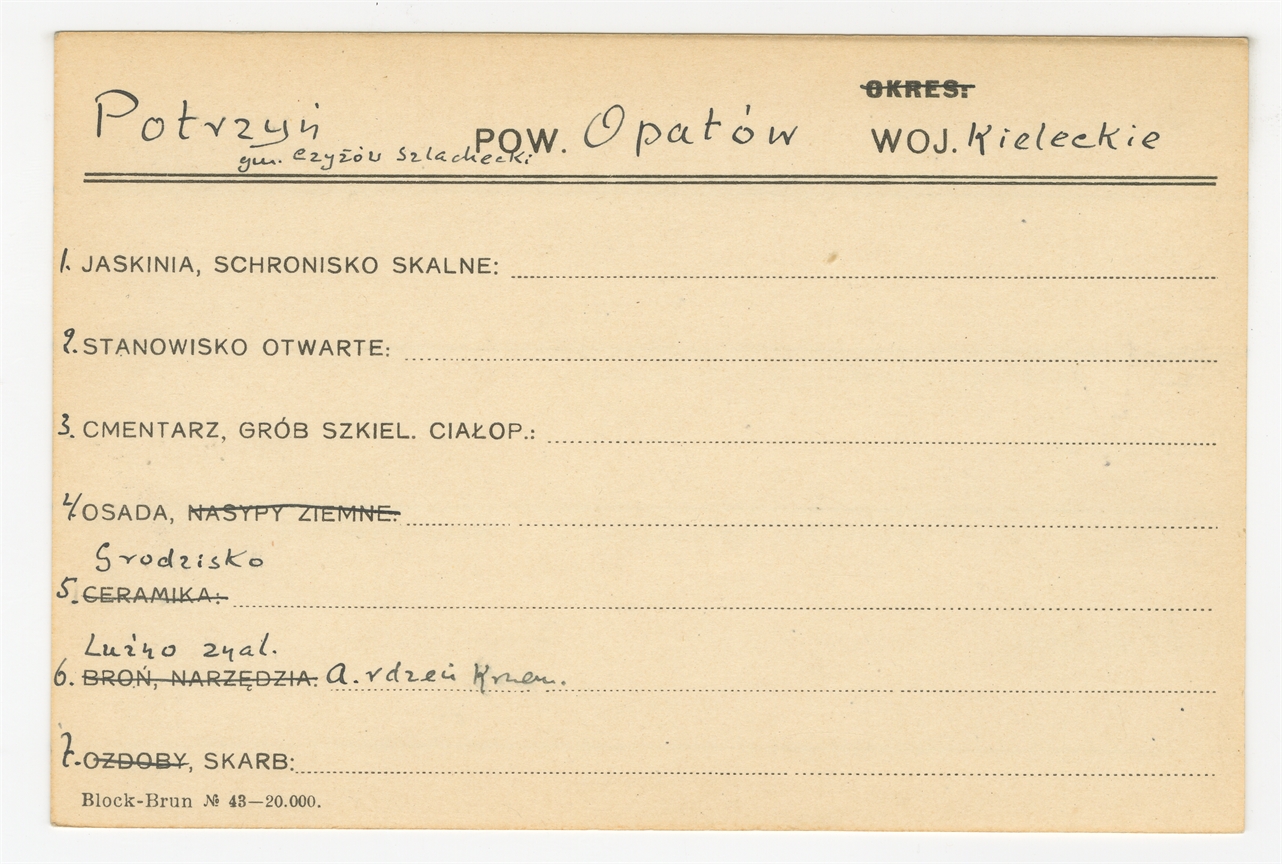 OKRES:
Potrzyń POW. Opatów WOJ. Kieleckie
gm. Czyżów Szlachecki
1. JASKINIA, SCHRONISKO SKALNE:
2. STANOWISKO OTWARTE:
3. CMENTARZ, GRÓB SZKIEL. CIAŁOP.:
4. OSADA, NASYPY ZIEMNE:
Grodzisko
5. CERAMIKA:
Luźno znal.
6. BROŃ, NARZĘDZIA: A. rdzeń Krzem.
7. OZDOBY, SKARB:
Block-Brun № 43—20.000.